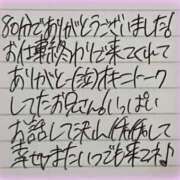 80分でありがとうございました!
お仕事終わりで来てくれて
ありがとー
トーク
してたお兄さん♡いっぱい
お話して沢山
して
幸せ♡またいつでも来てネ♪